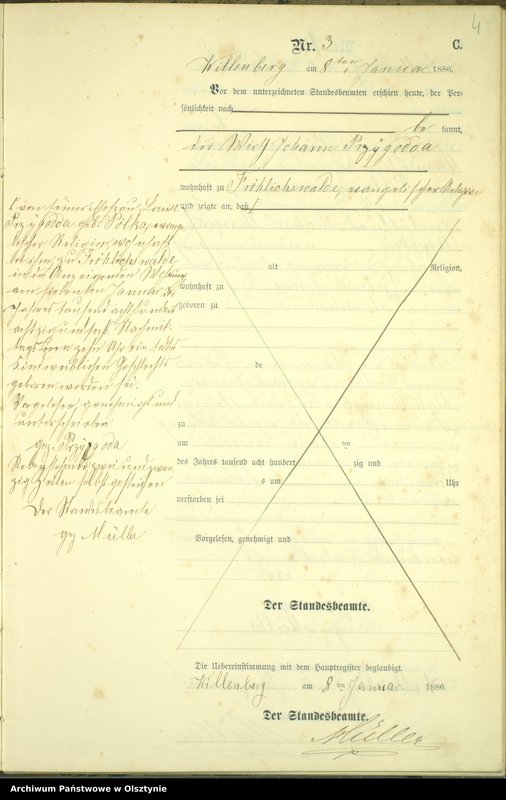 4
Nr. 3 C.
Willenberg am 8ten Januar 1886.
Vor dem unterzeichneten Standesbeamten erschien heute, der Per-
sönlichkeit nach
be kannt,
der Wirth Johann Przygodda
wohnhaft zu Fröhlichswalde, evangelischer Religion
und zeigte an, daß
von seiner Ehefrau, Louise
Przygodda geb. Potka, evange-
lischer Religion, wohnhaft
bei ihm, zu Fröhlichswalde
in des Anzeigenden Wohnung
am siebenten Januar des
Jahres tausend acht hundert
achtzig und sechs Nachmit-
tags um zehn Uhr ein todtes
Kind weiblichen Geschlechts
geboren worden sei.
Vorgelesen, genehmigt und
unterschrieben
gez. Przygoda
Nebenstehende zwei und zwan-
zig Zeilen selbst gestrichen
Der Standesbeamte
gez Müller
alt Religion,
wohnhaft zu
geboren zu
de
zu
am ten
des Jahres tausend acht hundert zig und
s um Uhr
verstorben sei
Vorgelesen, genehmigt und
Der Standesbeamte.
Die Uebereinstimmung mit dem Hauptregister beglaubigt.
Willenberg am 8ten Januar 1886.
Der Standesbeamte.
Müller
Archiwum Państwowe w Olsztynie